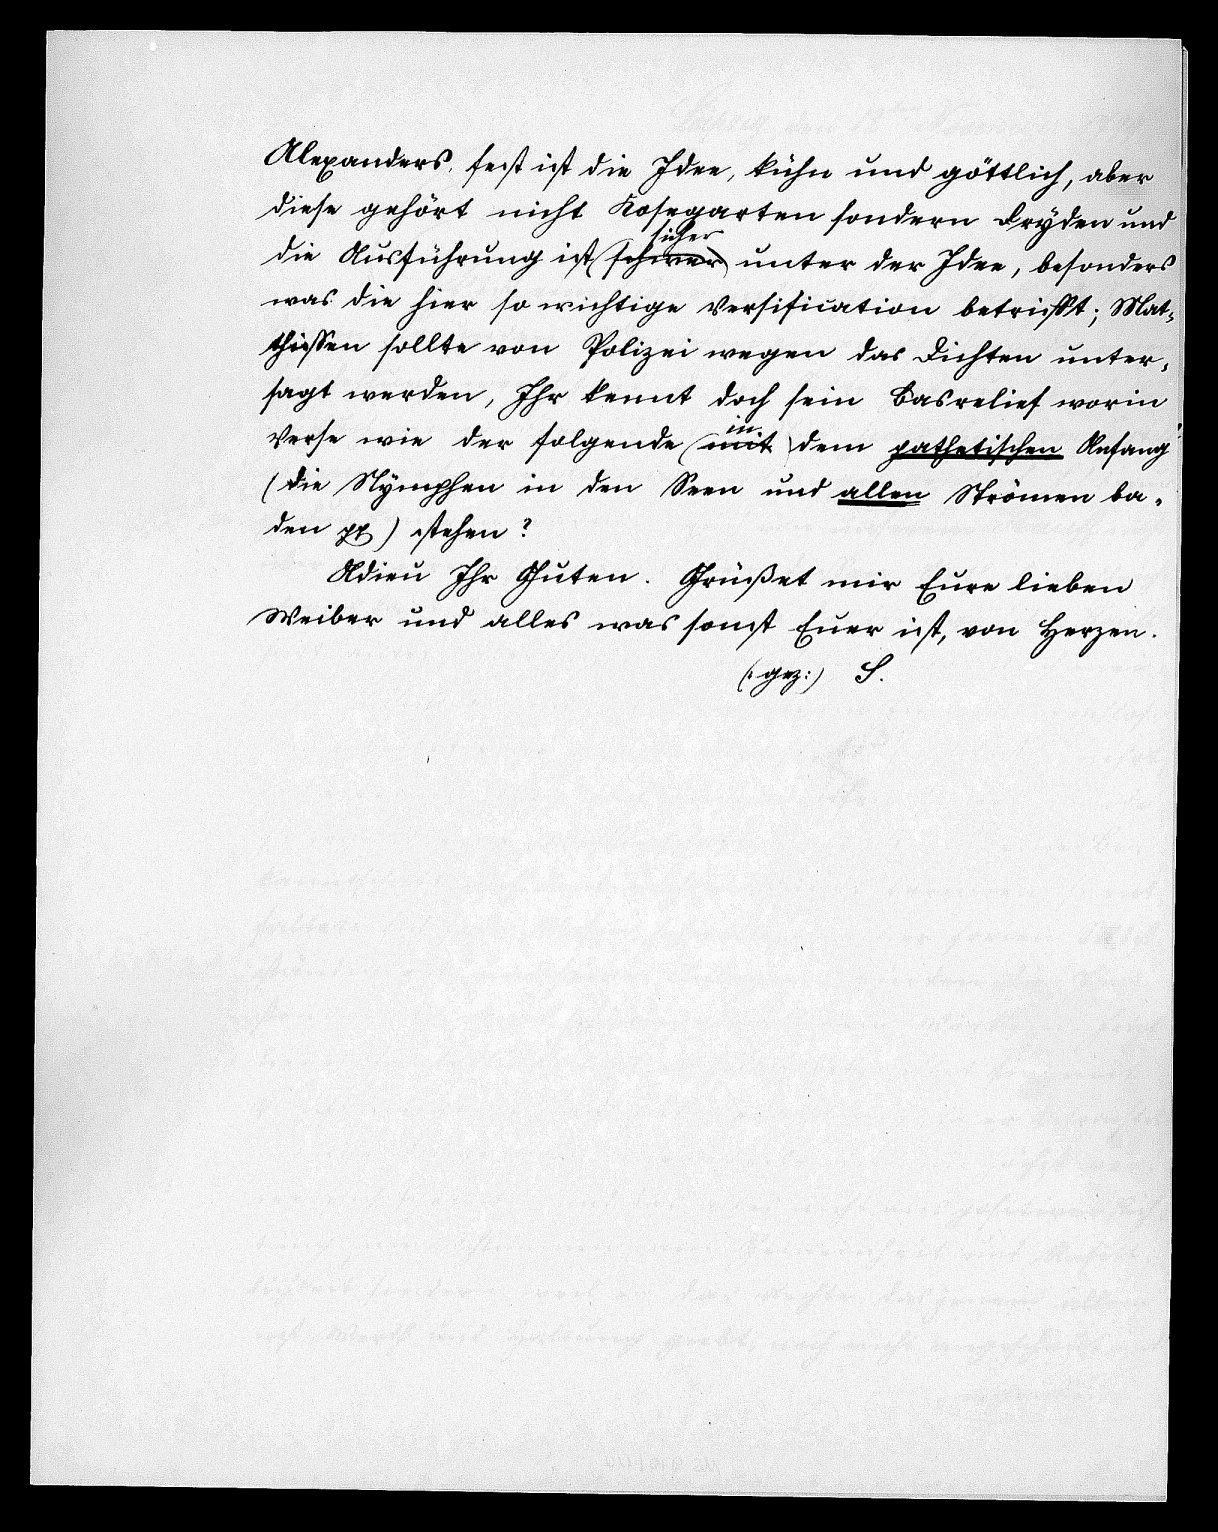 Alexanders, fest ist die Idee, kühn und göttlich, aber
diese gehört nicht Kosegarten sondern Dryden und
sicher
die Ausführung ist (schwer) unter der Idee, besonders
was die hier so wichtige Versification betrifft; Mat-
thissen sollte von Polizei wegen das Dichten unter-
sagt werden, Ihr kennt doch sein Basrelief worin
in
Verse wie der folgende (mit) dem pathetischen Anfang
(die Nymphen in den Seen und allen Strömen ba-
den pp) stehen?
Adieu Ihr Guten. Grüßet mir Eure lieben
Weiber und alles was sonst Euer ist, von Herzen.
(: gez:) S.